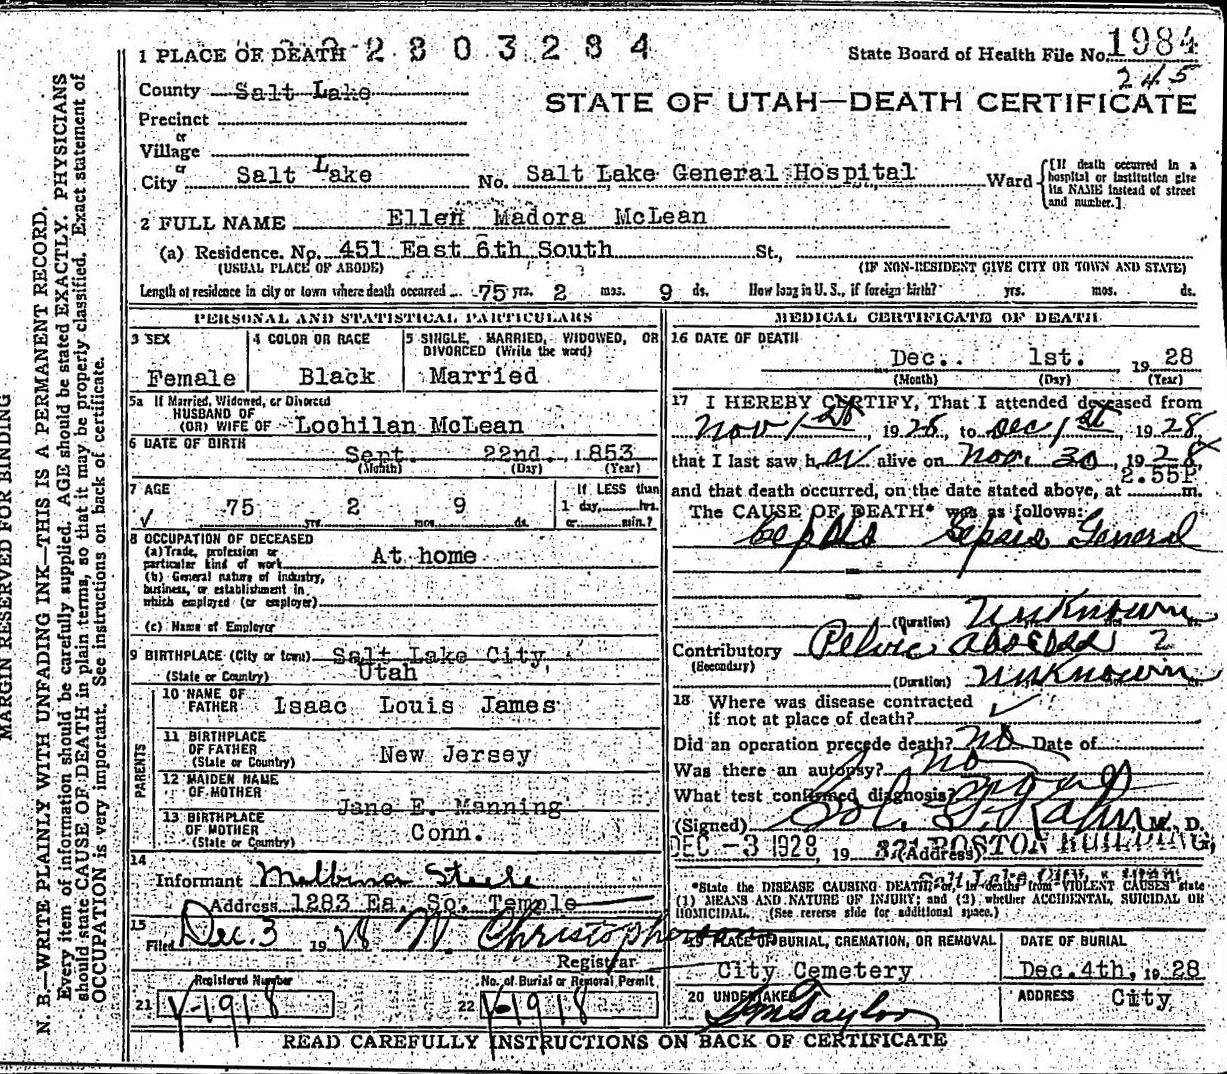 2803284
1984
State Board of Health File No.
245
1 PLACE OF DEATH
County Salt Lake
STATE OF UTAH—DEATH CERTIFICATE
Precinct
or
Village
or
City Salt Lake No. Salt Lake General Hospital Ward {[If death occurred in a hospital or institution give its NAME instead of street and number.]
2 FULL NAME Ellen Madora McLean
(a) Residence. No. 451 East 6th South St.,
(USUAL PLACE OF ABODE) (IF NON-RESIDENT GIVE CITY OR TOWN AND STATE)
Length of residence in city or town where death occurred 75 yrs. 2 mos. 9 ds. How long in U. S., if foreign birth? yrs. mos. ds.
PERSONAL AND STATISTICAL PARTICULARS
3 SEX
Female
4 COLOR OR RACE
Black
5 SINGLE, MARRIED, WIDOWED, OR
DIVORCED (Write the word)
Married
5a If Married, Widowed, or Divorced
HUSBAND OF
(OR) WIFE OF Lochilan McLean
6 DATE OF BIRTH Sept. 22nd. 1853
(Month) (Day) (Year)
7 AGE
75 yrs. 2 mos. 9 ds.
If LESS than
1 day, hrs.
or min.?
8 OCCUPATION OF DECEASED
(a) Trade, profession or
particular kind of work At home
(b) General nature of industry,
business, or establishment in
which employed (or employer)
(c) Name of Employer
9 BIRTHPLACE (City or town) Salt Lake City,
(State or Country) Utah
PARENTS
10 NAME OF
FATHER Isaac Louis James
11 BIRTHPLACE
OF FATHER
(State or Country) New Jersey
12 MAIDEN NAME
OF MOTHER Jane E. Manning
13 BIRTHPLACE
OF MOTHER
(State or Country) Conn.
14
Informant Malbina Steele
Address 1283 Ea. So. Temple
15
Filed Dec. 3 1928 W. Christopherson
Registrar
Registered Number
21 Y-1918
No. of Burial or Removal Permit
22 Y-1918
MEDICAL CERTIFICATE OF DEATH
16 DATE OF DEATH
Dec. 1st. 1928
(Month) (Day) (Year)
17 I HEREBY CERTIFY, That I attended deceased from
Nov 1st 1928, to Dec 1st, 1928
that I last saw her alive on Nov. 30, 1928
2.55P
and that death occurred, on the date stated above, at m.
The CAUSE OF DEATH* was as follows:
Sepsis General
(Duration) Unknown
Contributory Pelvic abscess 2
(Secondary)
(Duration) Unknown
18 Where was disease contracted
if not at place of death?
Did an operation precede death? no Date of
Was there an autopsy? no
What test confirmed diagnosis?
(Signed) Sol. G. Kahn M. D.
DEC -3 1928, 19 (Address) BOSTON BUILDING,
Salt Lake City, Utah
*State the DISEASE CAUSING DEATH, or, in deaths from VIOLENT CAUSES state
(1) MEANS AND NATURE OF INJURY; and (2) whether ACCIDENTAL, SUICIDAL OR
HOMICIDAL. (See reverse side for additional space.)
19 PLACE OF BURIAL, CREMATION, OR REMOVAL
City Cemetery
DATE OF BURIAL
Dec. 4th, 1928
20 UNDERTAKER
S M Taylor
ADDRESS City
READ CAREFULLY INSTRUCTIONS ON BACK OF CERTIFICATE
MARGIN RESERVED FOR BINDING
N. B.—WRITE PLAINLY WITH UNFADING INK—THIS IS A PERMANENT RECORD.
Every item of information should be carefully supplied. AGE should be stated EXACTLY. PHYSICIANS
should state CAUSE OF DEATH in plain terms, so that it may be properly classified. Exact statement of
OCCUPATION is very important. See instructions on back of certificate.